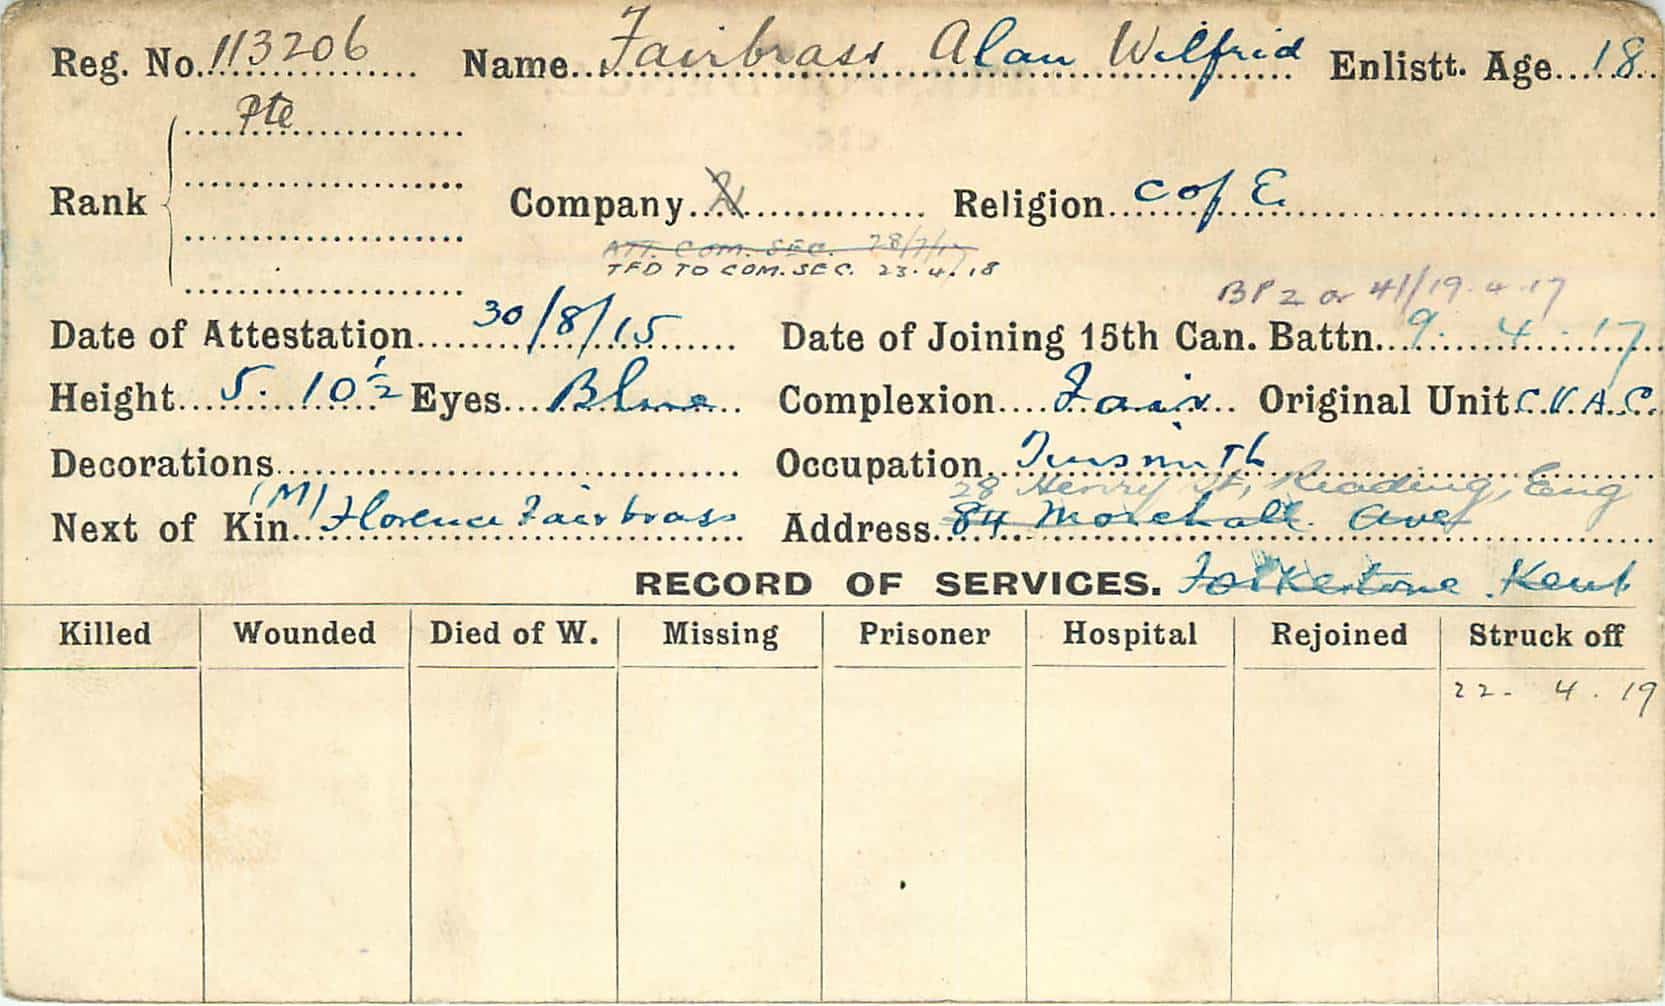 Reg. No. 113206 Name Fairbrass Alan Wilfrid Enlistt. Age 18
Pte
Rank Company Religion C of E
ATT. COM. SEC. 28/7/17
TFD TO COM. SEC. 23.4.18
BP 2 or 41/19.4.17
Date of Attestation 30/8/15 Date of Joining 15th Can. Battn. 9.4.17
Height 5.10½ Eyes Blue Complexion Fair Original Unit C.V.A.C.
Decorations Occupation Tinsmith
28 Henry St, Reading, Eng
Next of Kin (M) Florence Fairbrass Address 84 Morehall Ave
RECORD OF SERVICES. Folkestone Kent
Killed Wounded Died of W. Missing Prisoner Hospital Rejoined Struck off
22.4.19